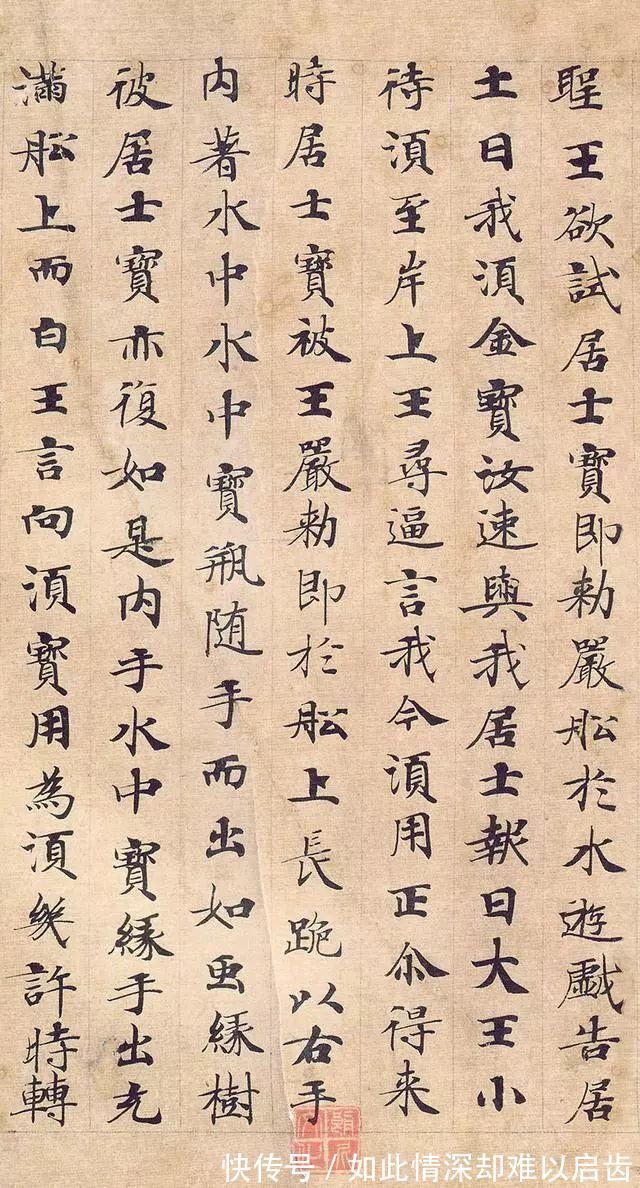 聖王欲試居士寶即勑嚴舩於水遊戲告居
士曰我湏金寶汝速與我居士報曰大王小
待湏至岸上王尋逼言我今湏用正尒得来
時居士寶被王嚴勑即於舩上長跪以右手
内著水中水中寶瓶随手而出如虫緣樹
彼居士寶亦復如是内手水中寶緣手出充
滿舩上而白王言向湏寶用為湏幾許時轉
快传号/如此情深却难以启齿